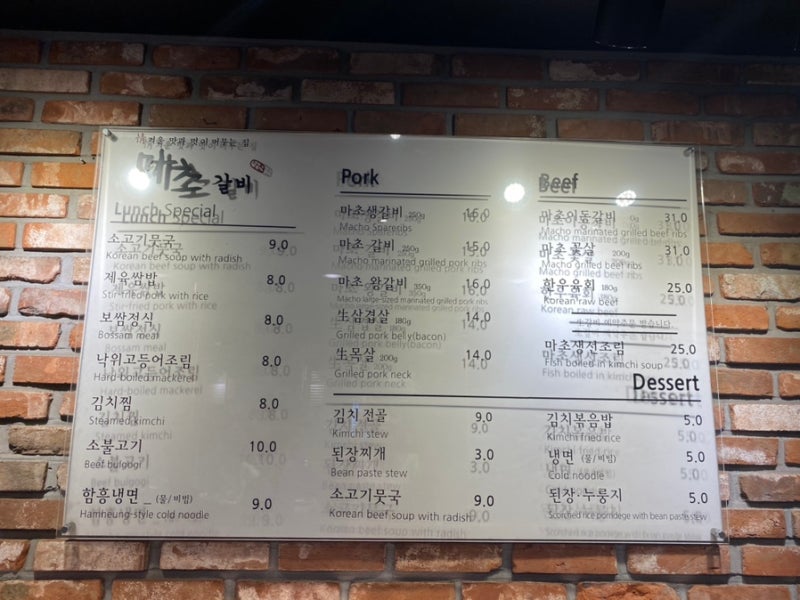 맛집
마초 갈비
Lunch Special
소고기뭇국 9.0
Korean beef soup with radish
제육쌈밥 8.0
Stir-fried pork with rice
보쌈정식 8.0
Bossam meal
낙위고등어조림 8.0
Hard-boiled mackerel
김치찜 8.0
Steamed kimchi
소불고기 10.0
Beef bulgogi
함흥냉면 _ (물/비빔) 9.0
Hamheung-style cold noodle
Pork
마초생갈비 250g 16.0
Macho Spareribs
마초 갈비 250g 15.0
Macho marinated grilled pork ribs
마초 왕갈비 350g 16.0
Macho large-sized marinated grilled pork ribs
生삼겹살 180g 14.0
Grilled pork belly(bacon)
生목살 200g 14.0
Grilled pork neck
Beef
마초이동갈비 31.0
Macho marinated grilled beef ribs
마초 꽃살 200g 31.0
Macho grilled beef ribs
한우육회 180g 25.0
Korean raw beef
마초생선조림 25.0
Fish boiled in kimchi soup
Dessert
김치 전골 9.0
Kimchi stew
된장찌개 3.0
Bean paste stew
소고기뭇국 9.0
Korean beef soup with radish
김치볶음밥 5.0
Kimchi fried rice
냉면 (물/비빔) 5.0
Cold noodle
된장·누룽지 5.0
Scorched rice porridege with bean paste stew